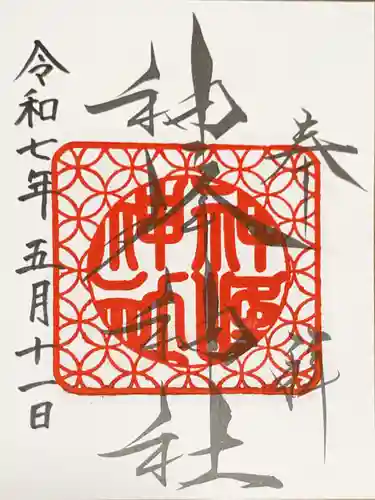 奉拝
神峰神社
令和七年 五月十一日